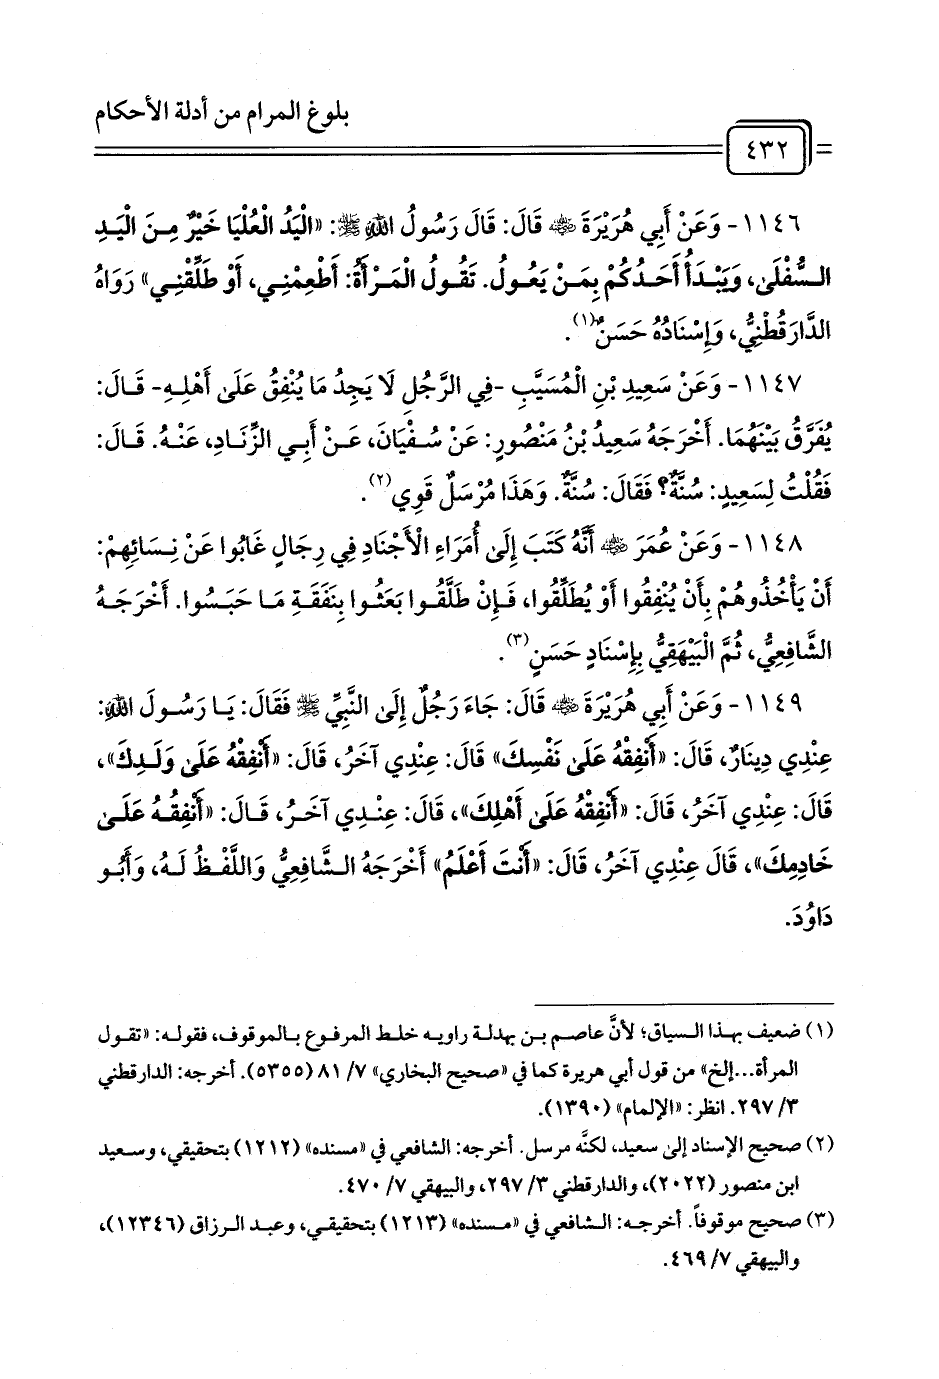 بلوغ المرام من أدلة الأحكام
٤٣٢
١١٤٦- وَعَنْ أَبِي هُرَيْرَةَ ﵁ قَالَ: قَالَ رَسُولُ اللهِ ﷺ: «الْيَدُ الْعُلْيَا خَيْرٌ مِنَ الْيَدِ
السُّفْلَى، وَيَبْدَأُ أَحَدُكُمْ بِمَنْ يَعُولُ. تَقُولُ الْمَرْأَةُ: أَطْعِمْنِي، أَوْ طَلِّقْنِي» رَوَاهُ
الدَّارَقُطْنِيُّ، وَإِسْنَادُهُ حَسَنٌ(١).
١١٤٧- وَعَنْ سَعِيدِ بْنِ الْمُسَيَّبِ -فِي الرَّجُلِ لَا يَجِدُ مَا يُنْفِقُ عَلَى أَهْلِهِ- قَالَ:
يُفَرَّقُ بَيْنَهُمَا. أَخْرَجَهُ سَعِيدُ بْنُ مَنْصُورٍ: عَنْ سُفْيَانَ، عَنْ أَبِي الزِّنَادِ، عَنْهُ. قَالَ:
فَقُلْتُ لِسَعِيدٍ: سُنَّةٌ؟ فَقَالَ: سُنَّةٌ. وَهَذَا مُرْسَلٌ قَوِي(٢).
١١٤٨- وَعَنْ عُمَرَ ﵁ أَنَّهُ كَتَبَ إِلَى أُمَرَاءِ الْأَجْنَادِ فِي رِجَالٍ غَابُوا عَنْ نِسَائِهِمْ:
أَنْ يَأْخُذُوهُمْ بِأَنْ يُنْفِقُوا أَوْ يُطَلِّقُوا، فَإِنْ طَلَّقُوا بَعَثُوا بِنَفَقَةِ مَا حَبَسُوا. أَخْرَجَهُ
الشَّافِعِيُّ، ثُمَّ الْبَيْهَقِيُّ بِإِسْنَادٍ حَسَنٍ(٣).
١١٤٩- وَعَنْ أَبِي هُرَيْرَةَ ﵁ قَالَ: جَاءَ رَجُلٌ إِلَى النَّبِيِّ ﷺ فَقَالَ: يَا رَسُولَ اللهِ:
عِنْدِي دِينَارٌ، قَالَ: «أَنْفِقْهُ عَلَى نَفْسِكَ» قَالَ: عِنْدِي آخَرُ، قَالَ: «أَنْفِقْهُ عَلَى وَلَدِكَ»،
قَالَ: عِنْدِي آخَرُ، قَالَ: «أَنْفِقْهُ عَلَى أَهْلِكَ»، قَالَ: عِنْدِي آخَرُ، قَالَ: «أَنْفِقْهُ عَلَى
خَادِمِكَ»، قَالَ عِنْدِي آخَرُ، قَالَ: «أَنْتَ أَعْلَمُ» أَخْرَجَهُ الشَّافِعِيُّ وَاللَّفْظُ لَهُ، وَأَبُو
دَاوُدَ.
(١) ضعيف بهذا السياق؛ لأنَّ عاصم بن بهدلة راويه خلط المرفوع بالموقوف، فقوله: «تقول
المرأة...إلخ» من قول أبي هريرة كما في «صحيح البخاري» ٧/ ٨١ (٥٣٥٥). أخرجه: الدارقطني
٣/ ٢٩٧. انظر: «الإلمام» (١٣٩٠).
(٢) صحيح الإسناد إلى سعيد، لكنَّه مرسل. أخرجه: الشافعي في «مسنده» (١٢١٢) بتحقيقي، وسعيد
ابن منصور (٢٠٢٢)، والدارقطني ٣/ ٢٩٧، والبيهقي ٧/ ٤٧٠.
(٣) صحيح موقوفاً. أخرجه: الشافعي في «مسنده» (١٢١٣) بتحقيقي، وعبد الرزاق (١٢٣٤٦)،
والبيهقي ٧/ ٤٦٩.